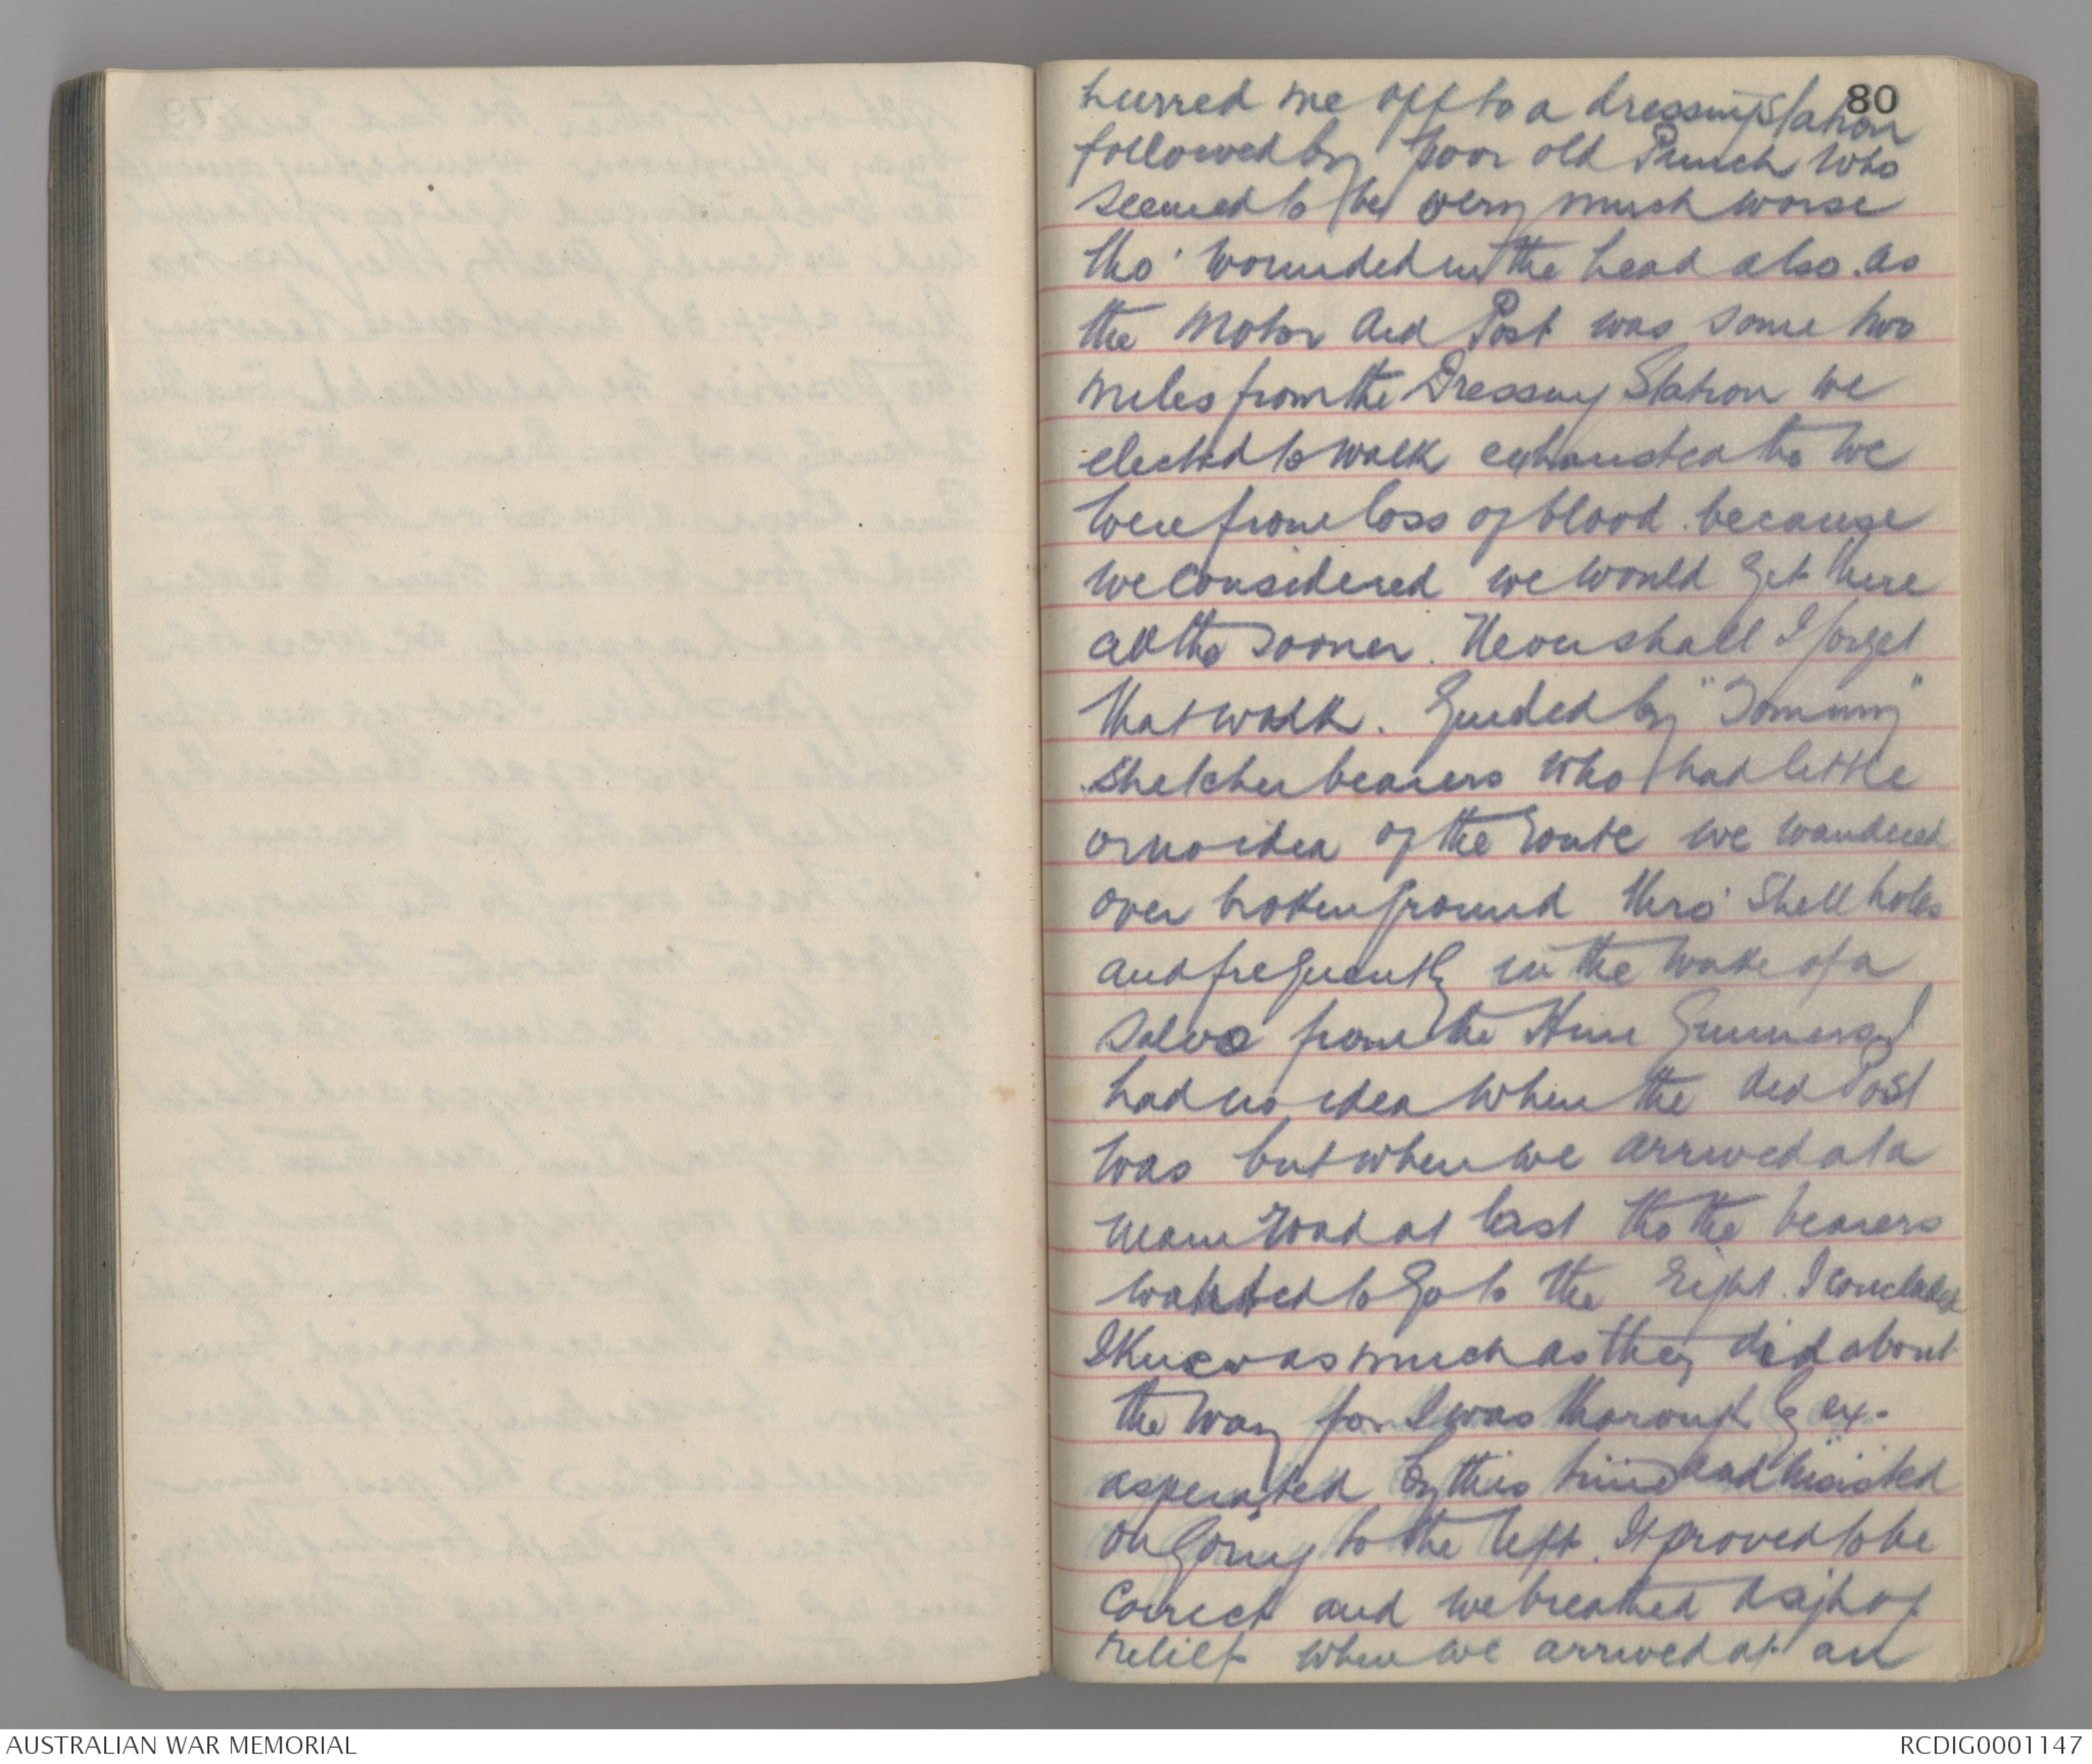 80
hurred me off to a dressing Station
followed by poor old Punch who
seemed to be very much worse
tho' wounded in the head also. As
the Motor Aid Post was some two
miles from the Dressing Station we
elected to walk exhausted tho we
were from loss of blood. because
we considered we would get there
all the sooner. Never shall I forget
that walk. Guided by "Tommy"
Stretcher bearers who had little
or no idea of the route we wandered
over broken ground thro' Shell holes
and frequently in the wake of a
salvo from the Hun Gunners. I
had no idea where the Aid Post
was but when we arrived at a
main road at last tho the bearers
wanted to go to the right. I concluded
I knew as much as they did about
the way for I was thoroughly ex-
asperated by this time and insisted
on going to the left. It proved to be
correct and we breathed a sigh of
relief when we arrived at an
AUSTRALIAN WAR MEMORIAL
RCDIG0001147